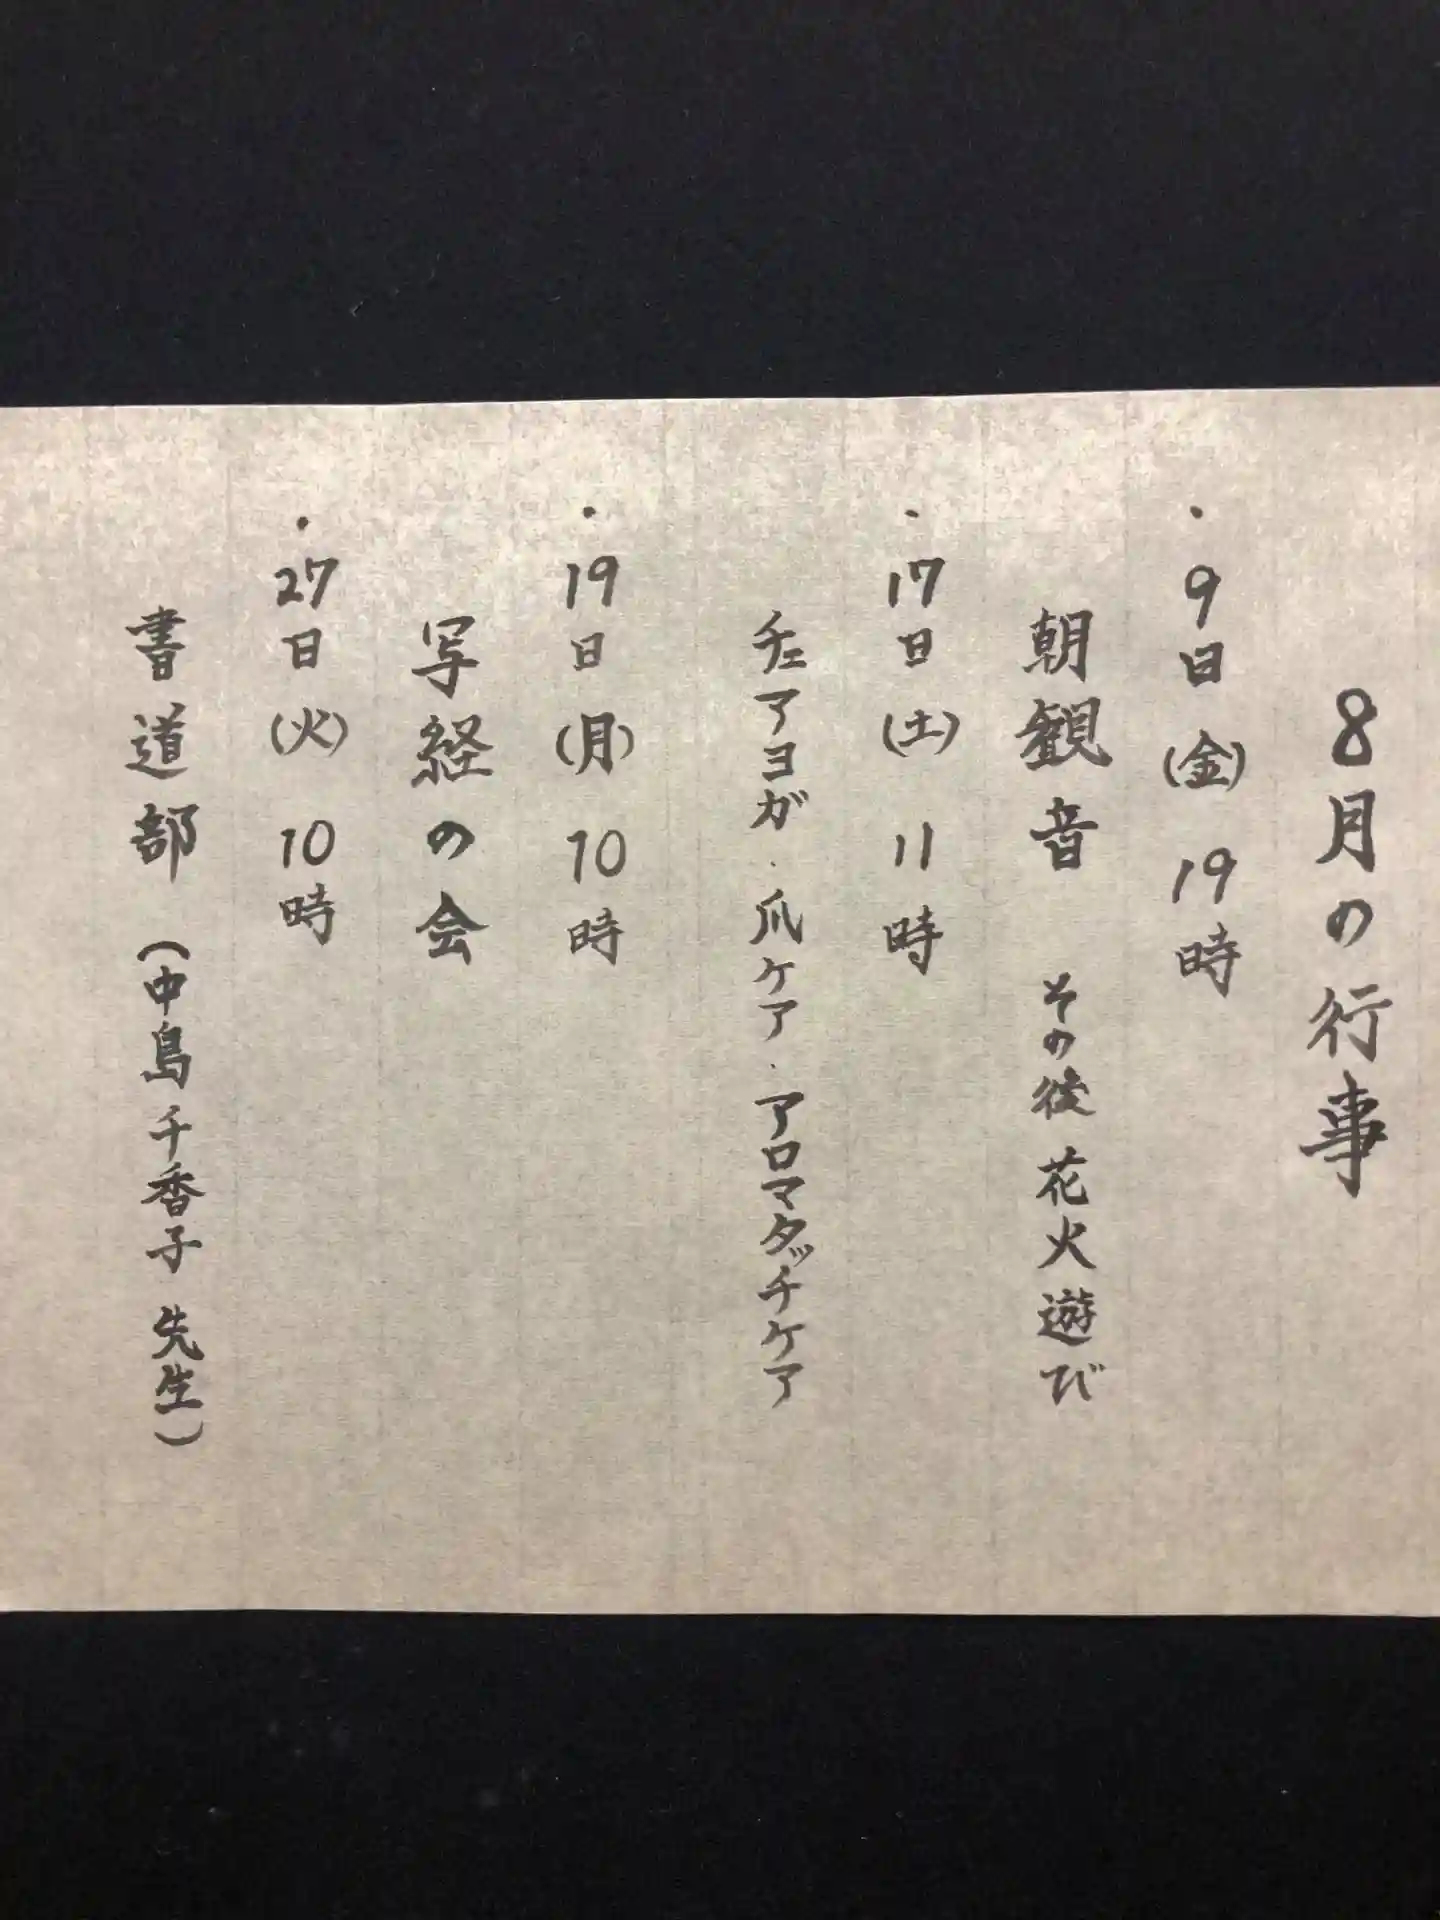 8月の行事
・9日(金) 19時
朝観音 その後 花火遊び
・17日(土) 11時
チェアヨガ・爪ケア・アロマタッチケア
・19日(月) 10時
写経の会
・27日(火) 10時
書道部 (中島千香子 先生)